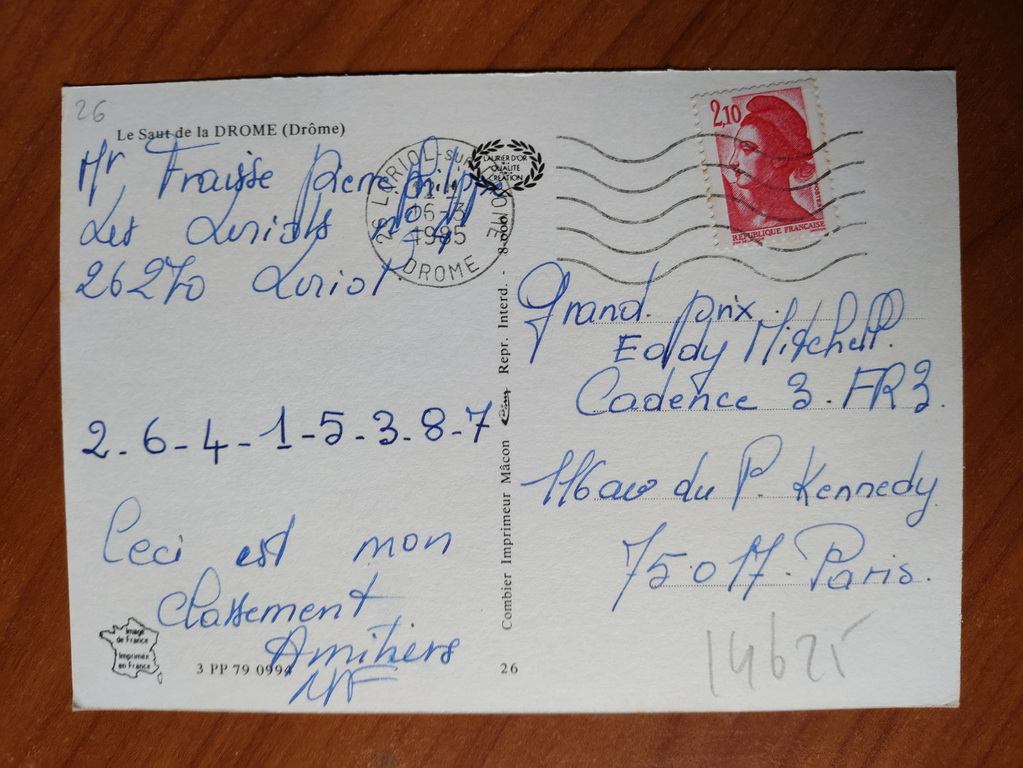 26
Le Saut de la DROME (Drôme)
Mr Fraisse Pierre philippe
Les Loriols
26270 Loriol.
2-6-4-1-5-3-8-7
Ceci est mon
Classement
Amitiers
Image
de France
Imprimée
en France
3 PP 79 0994
26 LORIOL-SUR-DROME
06-3
1985
DROME
LAURIER D'OR
QUALITE
CRÉATION
Combier Imprimeur Mâcon Cim Repr. Interd. -
26
2,10
POSTES
REPUBLIQUE FRANCAISE
Grand prix.
Eddy Mitchell.
Cadence 3. FR3.
116 ave du P. Kennedy
75017. Paris.
14625